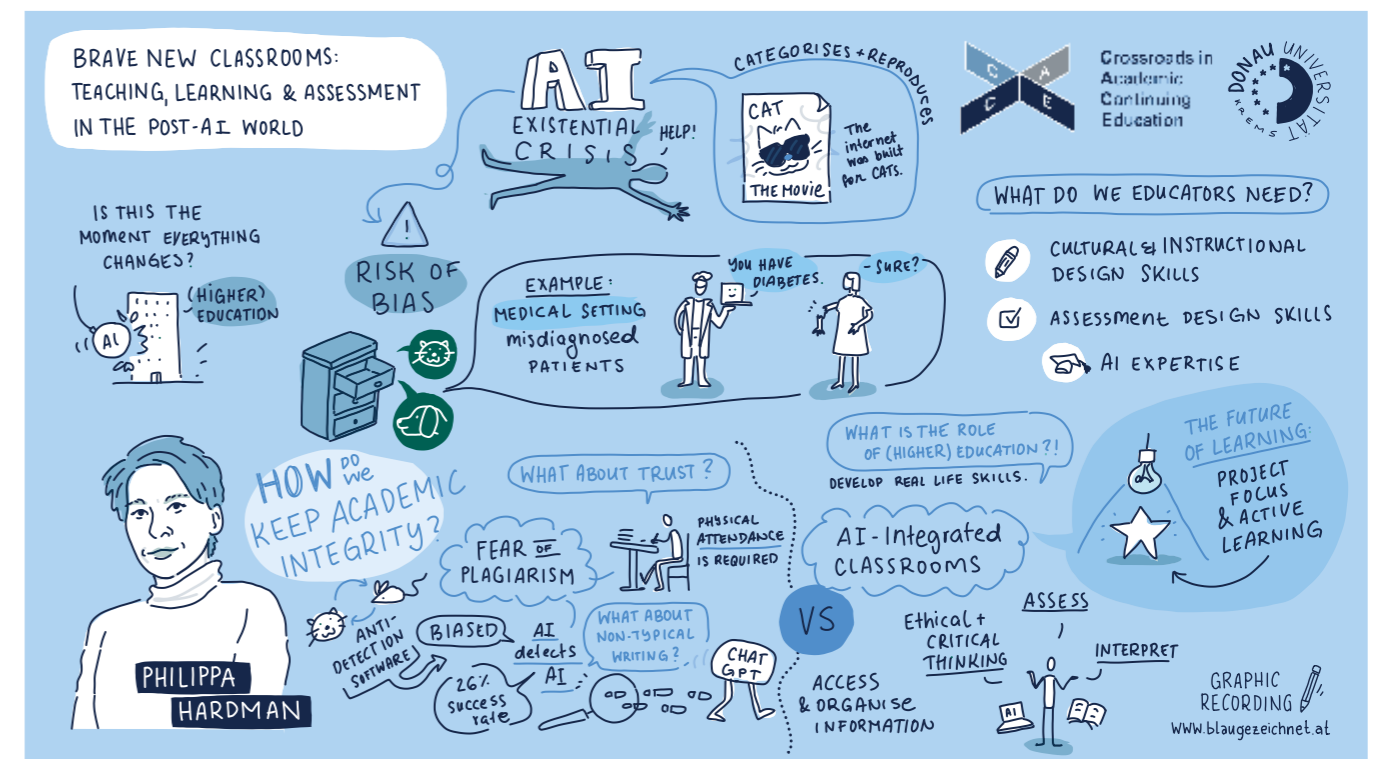 BRAVE NEW CLASSROOMS:
TEACHING, LEARNING & ASSESSMENT
IN THE POST-AI WORLD
AI
EXISTENTIAL
CRISIS
HELP!
CATEGORISES + REPRODUCES
CAT
THE MOVIE
The
internet
was built
for CATS.
C A
C E
Crossroads in
Academic
Continuing
Education
DONAU UNIVERSITÄT
KREMS
IS THIS THE
MOMENT EVERYTHING
CHANGES?
(HIGHER)
EDUCATION
AI
!
RISK OF
BIAS
EXAMPLE:
MEDICAL SETTING
misdiagnosed
PATIENTS
YOU HAVE
DIABETES.
- SURE?
WHAT DO WE EDUCATORS NEED?
CULTURAL & INSTRUCTIONAL
DESIGN SKILLS
ASSESSMENT DESIGN SKILLS
AI EXPERTISE
PHILIPPA
HARDMAN
HOW DO We
KEEP ACADEMIC
INTEGRITY?
ANTI-
DETECTION
SOFTWARE
BIASED
26%
success
rate
AI
detects
AI
WHAT ABOUT TRUST?
FEAR OF
PLAGIARISM
PHYSICAL
ATTENDANCE
IS REQUIRED
WHAT ABOUT
NON-TYPICAL
WRITING?
CHAT
GPT
VS
WHAT IS THE ROLE
OF (HIGHER) EDUCATION?!
DEVELOP REAL LIFE SKILLS.
AI-Integrated
CLASSROOMS
THE FUTURE
OF LEARNING:
PROJECT
FOCUS
& ACTIVE
LEARNING
Ethical +
CRITICAL
THINKING
ASSESS
INTERPRET
ACCESS
& ORGANISE
INFORMATION
AI
GRAPHIC
RECORDING
www.blaugezeichnet.at